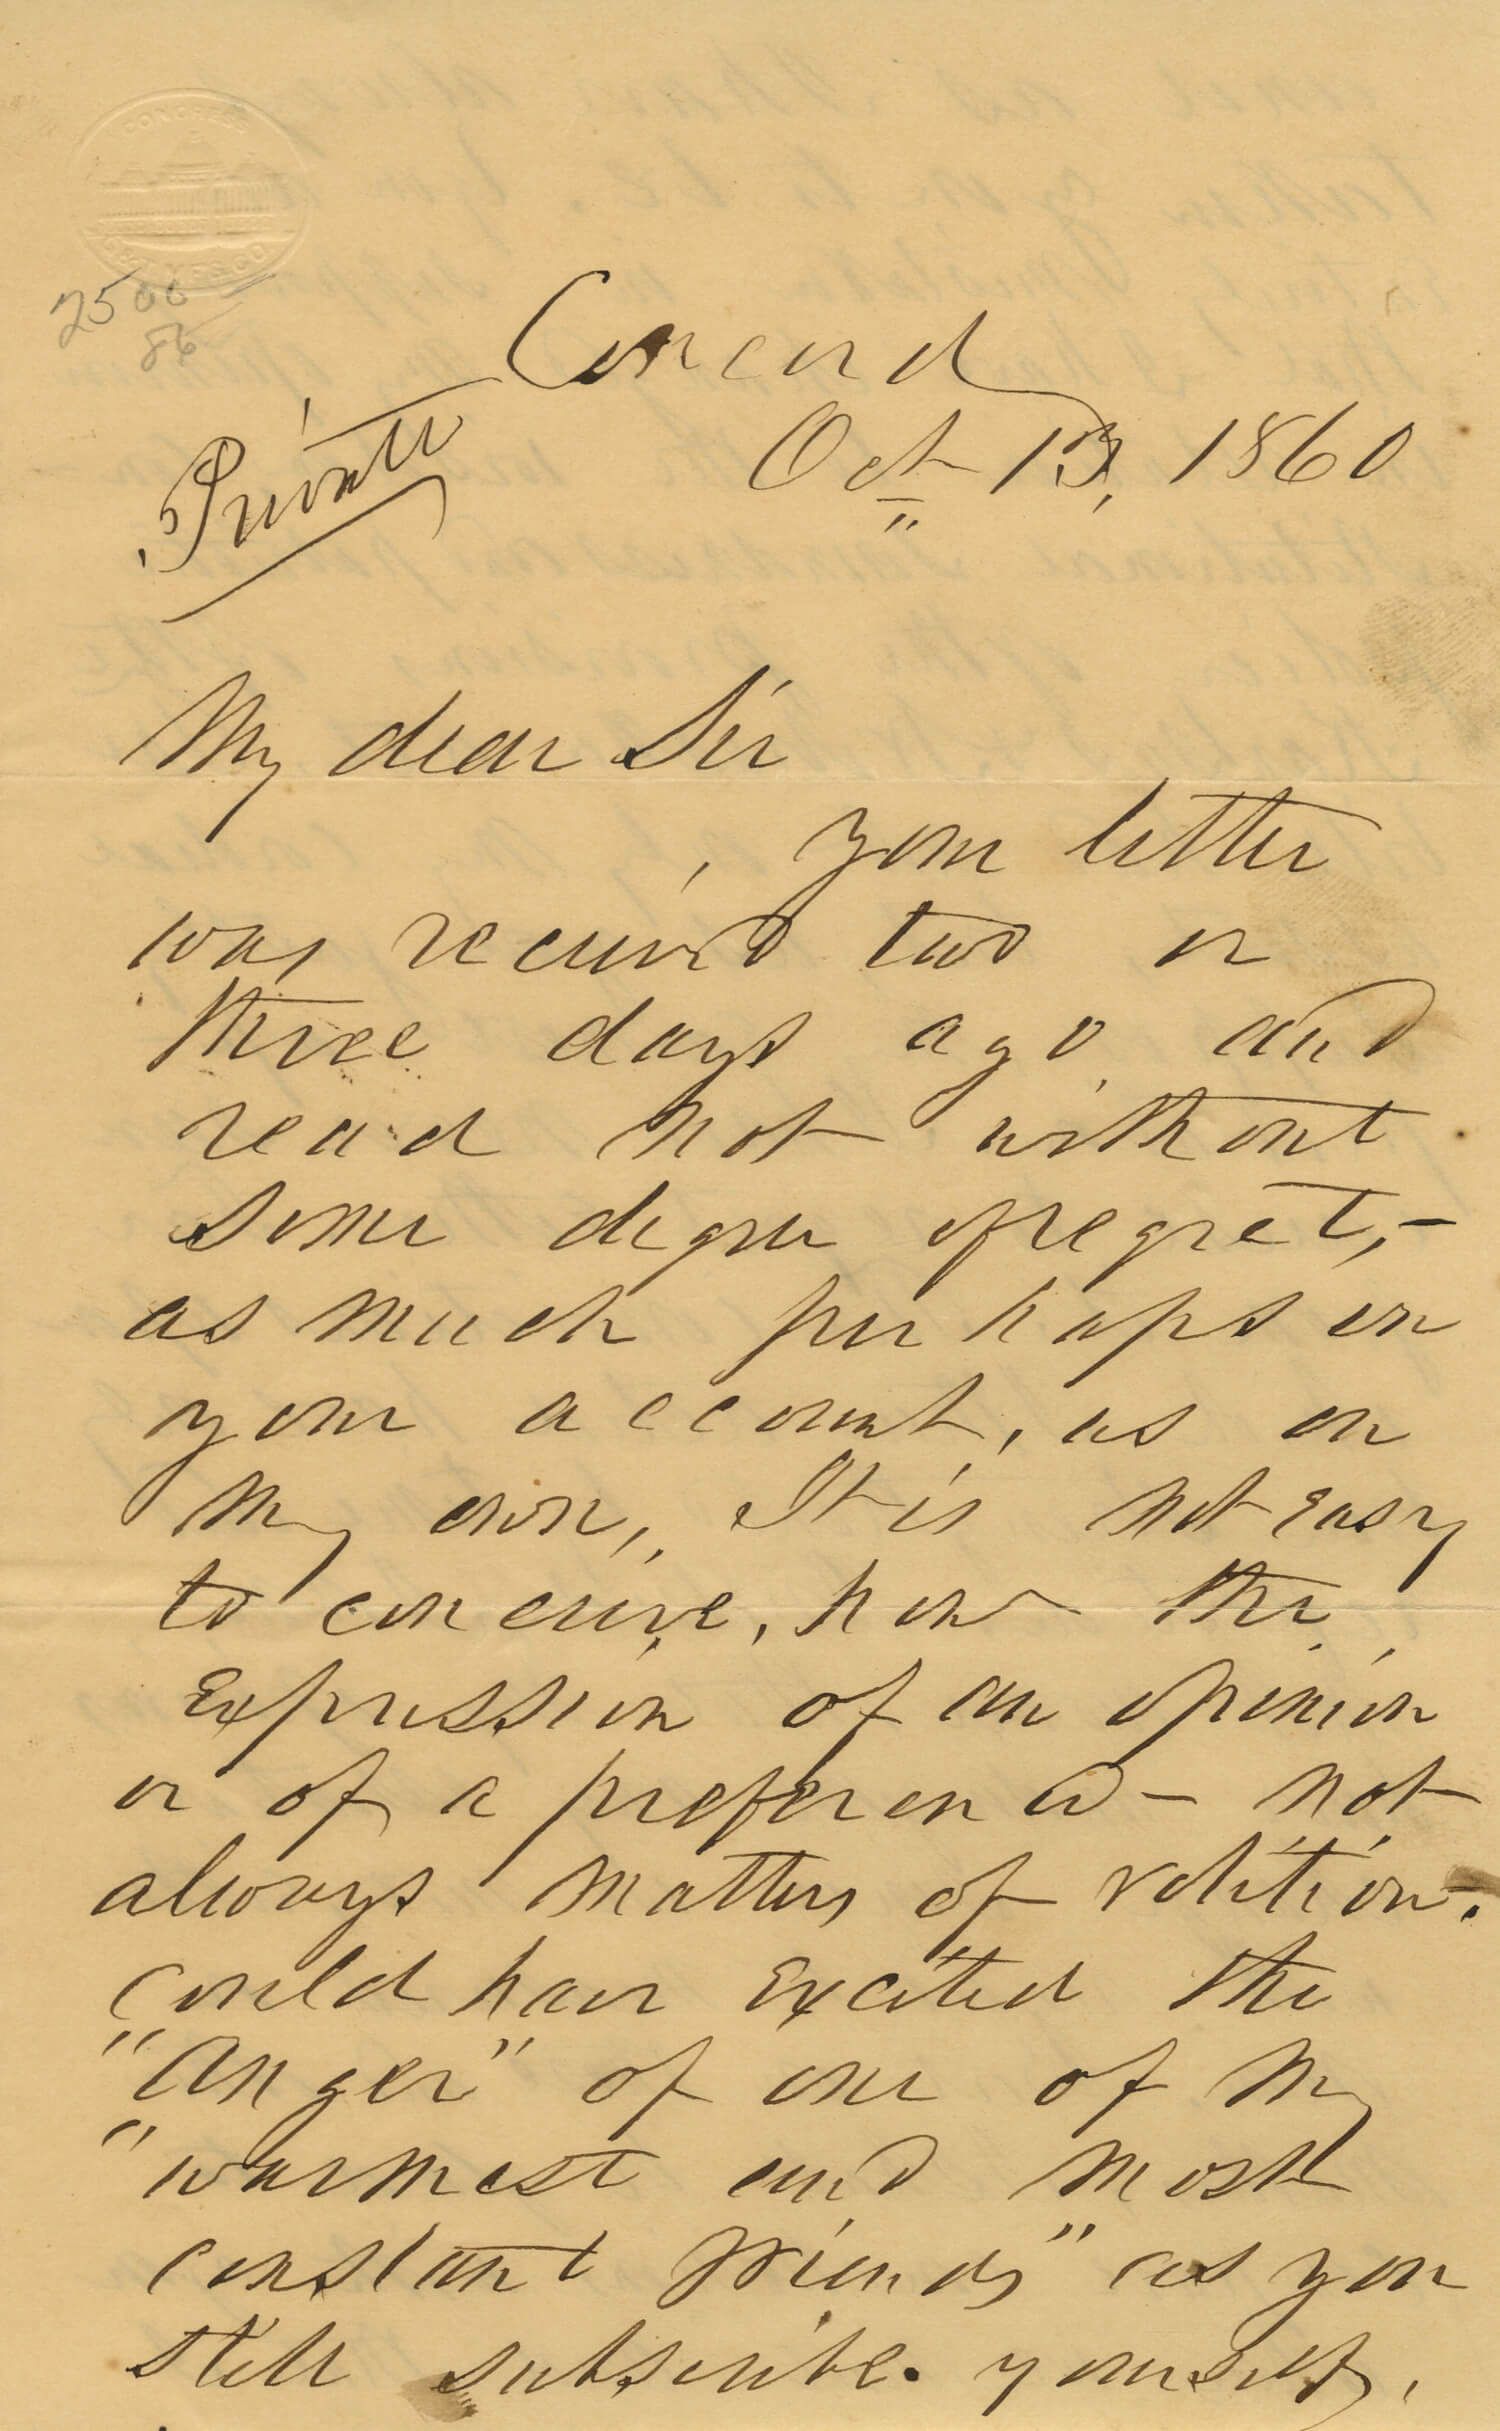 CONGRESS
2500
86
Concord
Private
Oct 13, 1860
My dear Sir
your letter
was received two or
three days ago, and
read not without
some degree of regret, -
as much perhaps on
your account, as on
my own,. It is not easy
to conceive, how the
expression of an opinion
or of a preference - not
always matters of volition.
could have excited the
"anger" of one of my
"warmest and most
constant friends" as you
still subscribe yourself.